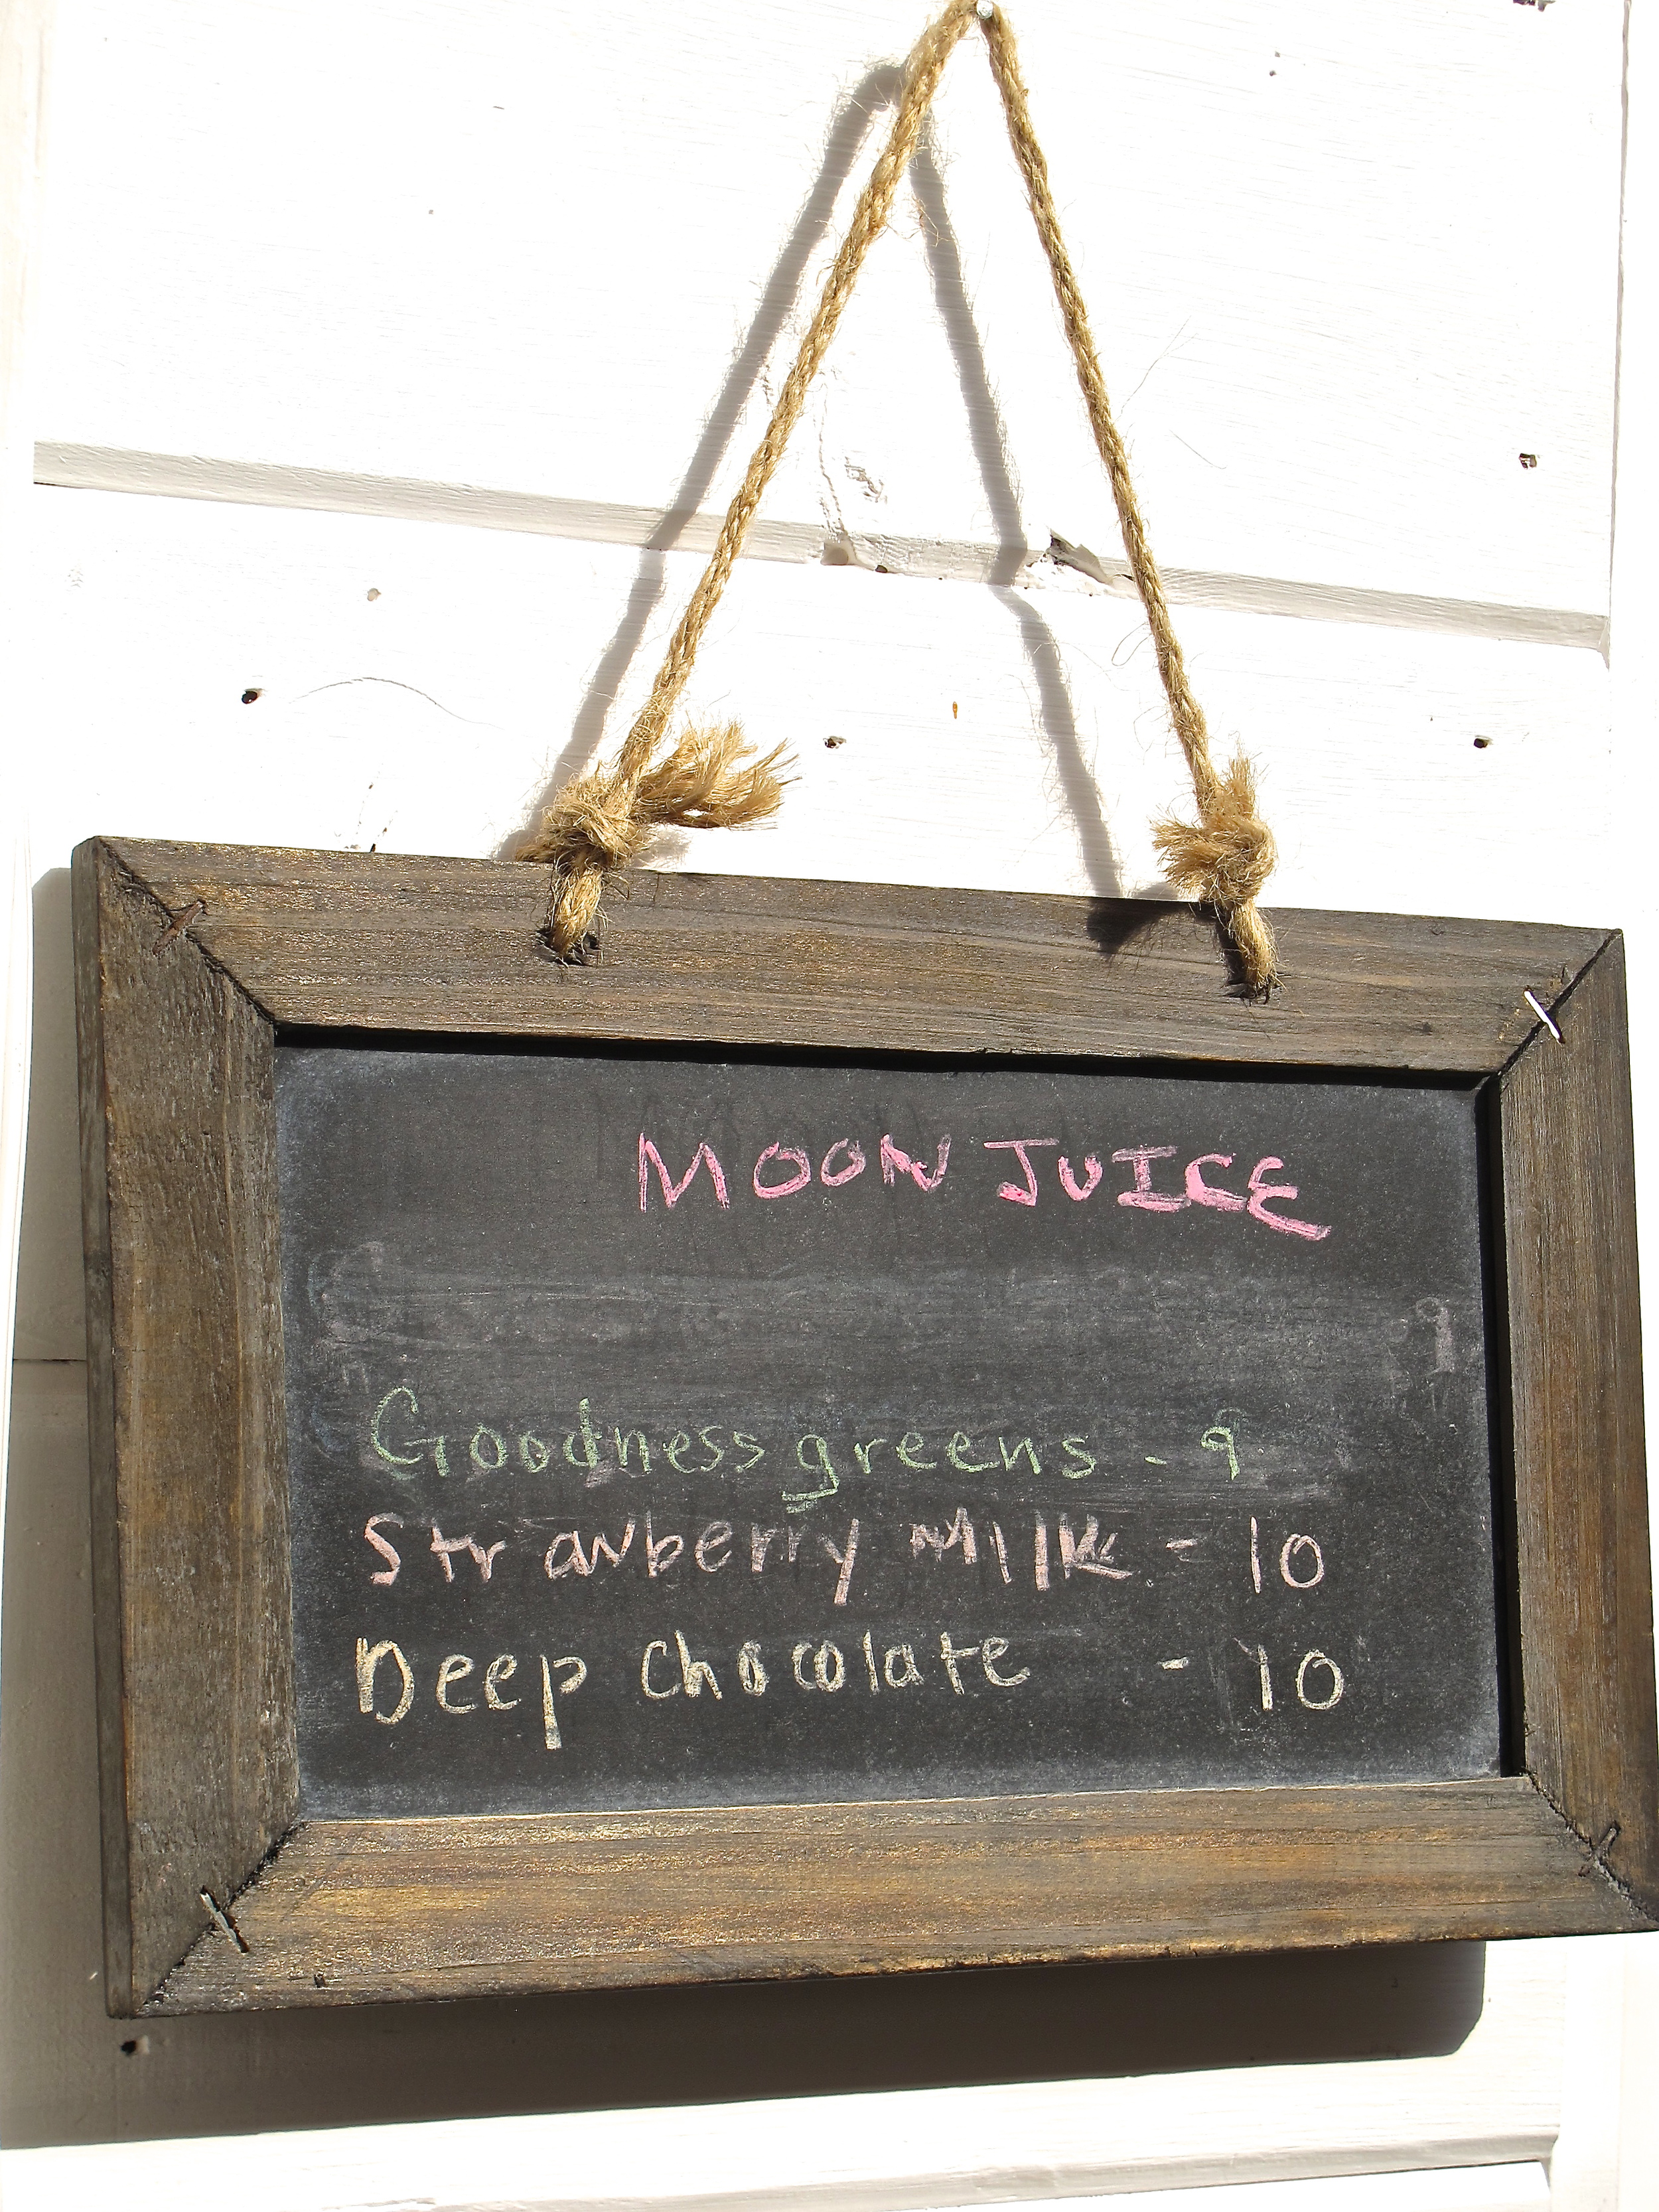 MOON JUICE
Goodness greens - 9
Strawberry Milk - 10
Deep chocolate - 10